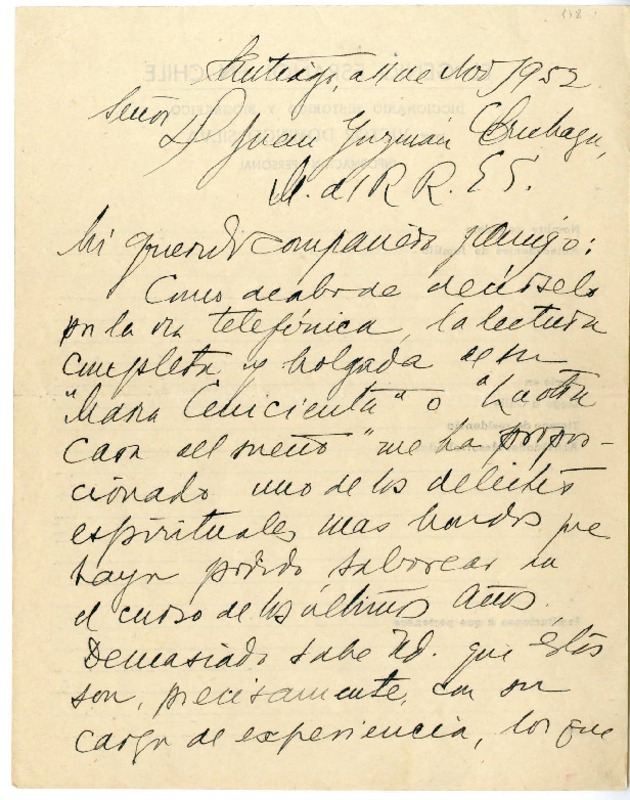 Santiago, a 11 de Nov/1952
Señor
D Juan Guzmán Cruchaga,
M. de RR. EE.
Mi querido compañero y amigo:
Como acabo de decírselo
por la vía telefónica, la lectura
completa y holgada de su
"María Cenicienta" o "La otra
Cara del sueño" me ha propor-
cionado uno de los deleites
espirituales mas hondos que
haya podido saborear en
el curso de los últimos años.
Demasiado sabe Ud. que estos
son, precisamente, con su
carga de experiencia, los que